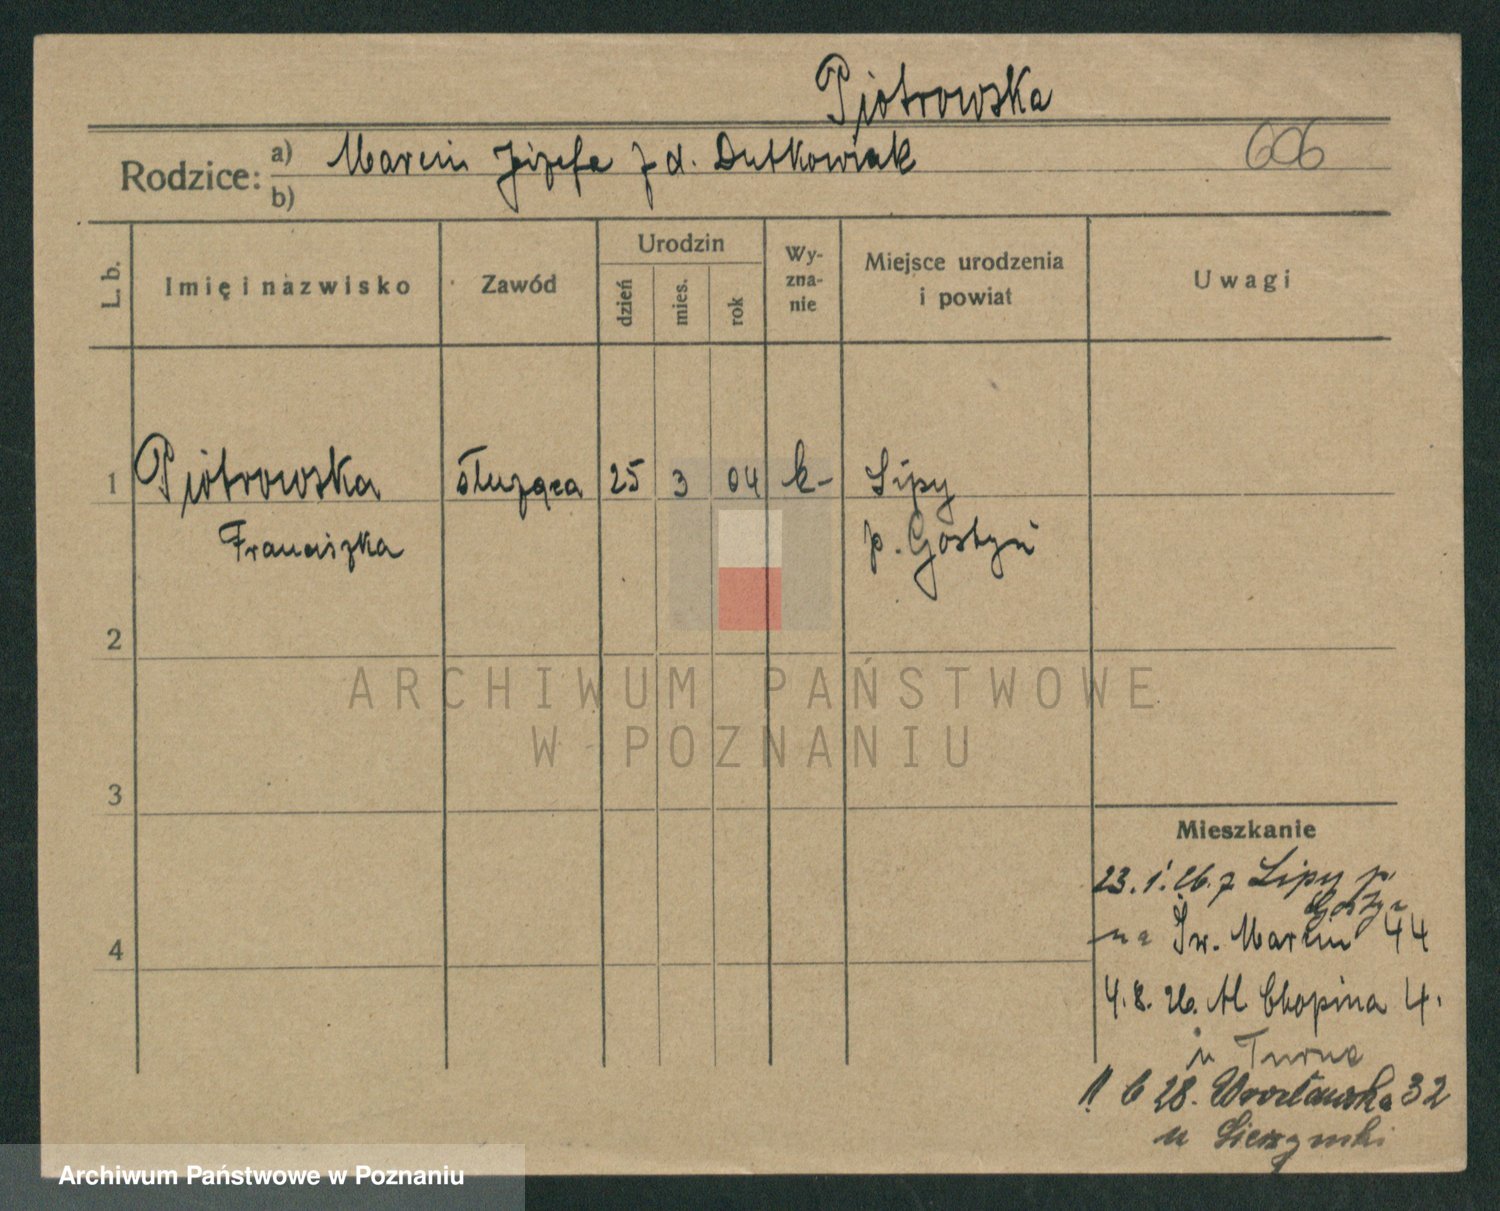 Piotrowska
Rodzice: a) Marcin Józefa z d. Dutkowiak 606
b)
L. b. Imię i nazwisko Zawód Urodzin dzień mies. rok Wyznanie Miejsce urodzenia i powiat Uwagi
1 Piotrowska służąca 25 3 04 k- Lipy
Franciszka p. Gostyń
2
ARCHIWUM PAŃSTWOWE
W POZNANIU
3
Mieszkanie
23. 1. 26. z Lipy p.
Gostyń
na Św. Marcin 44
4
4. 8. 26. Al Chopina 4.
u
28. Wrocławska 32
u
Archiwum Państwowe w Poznaniu